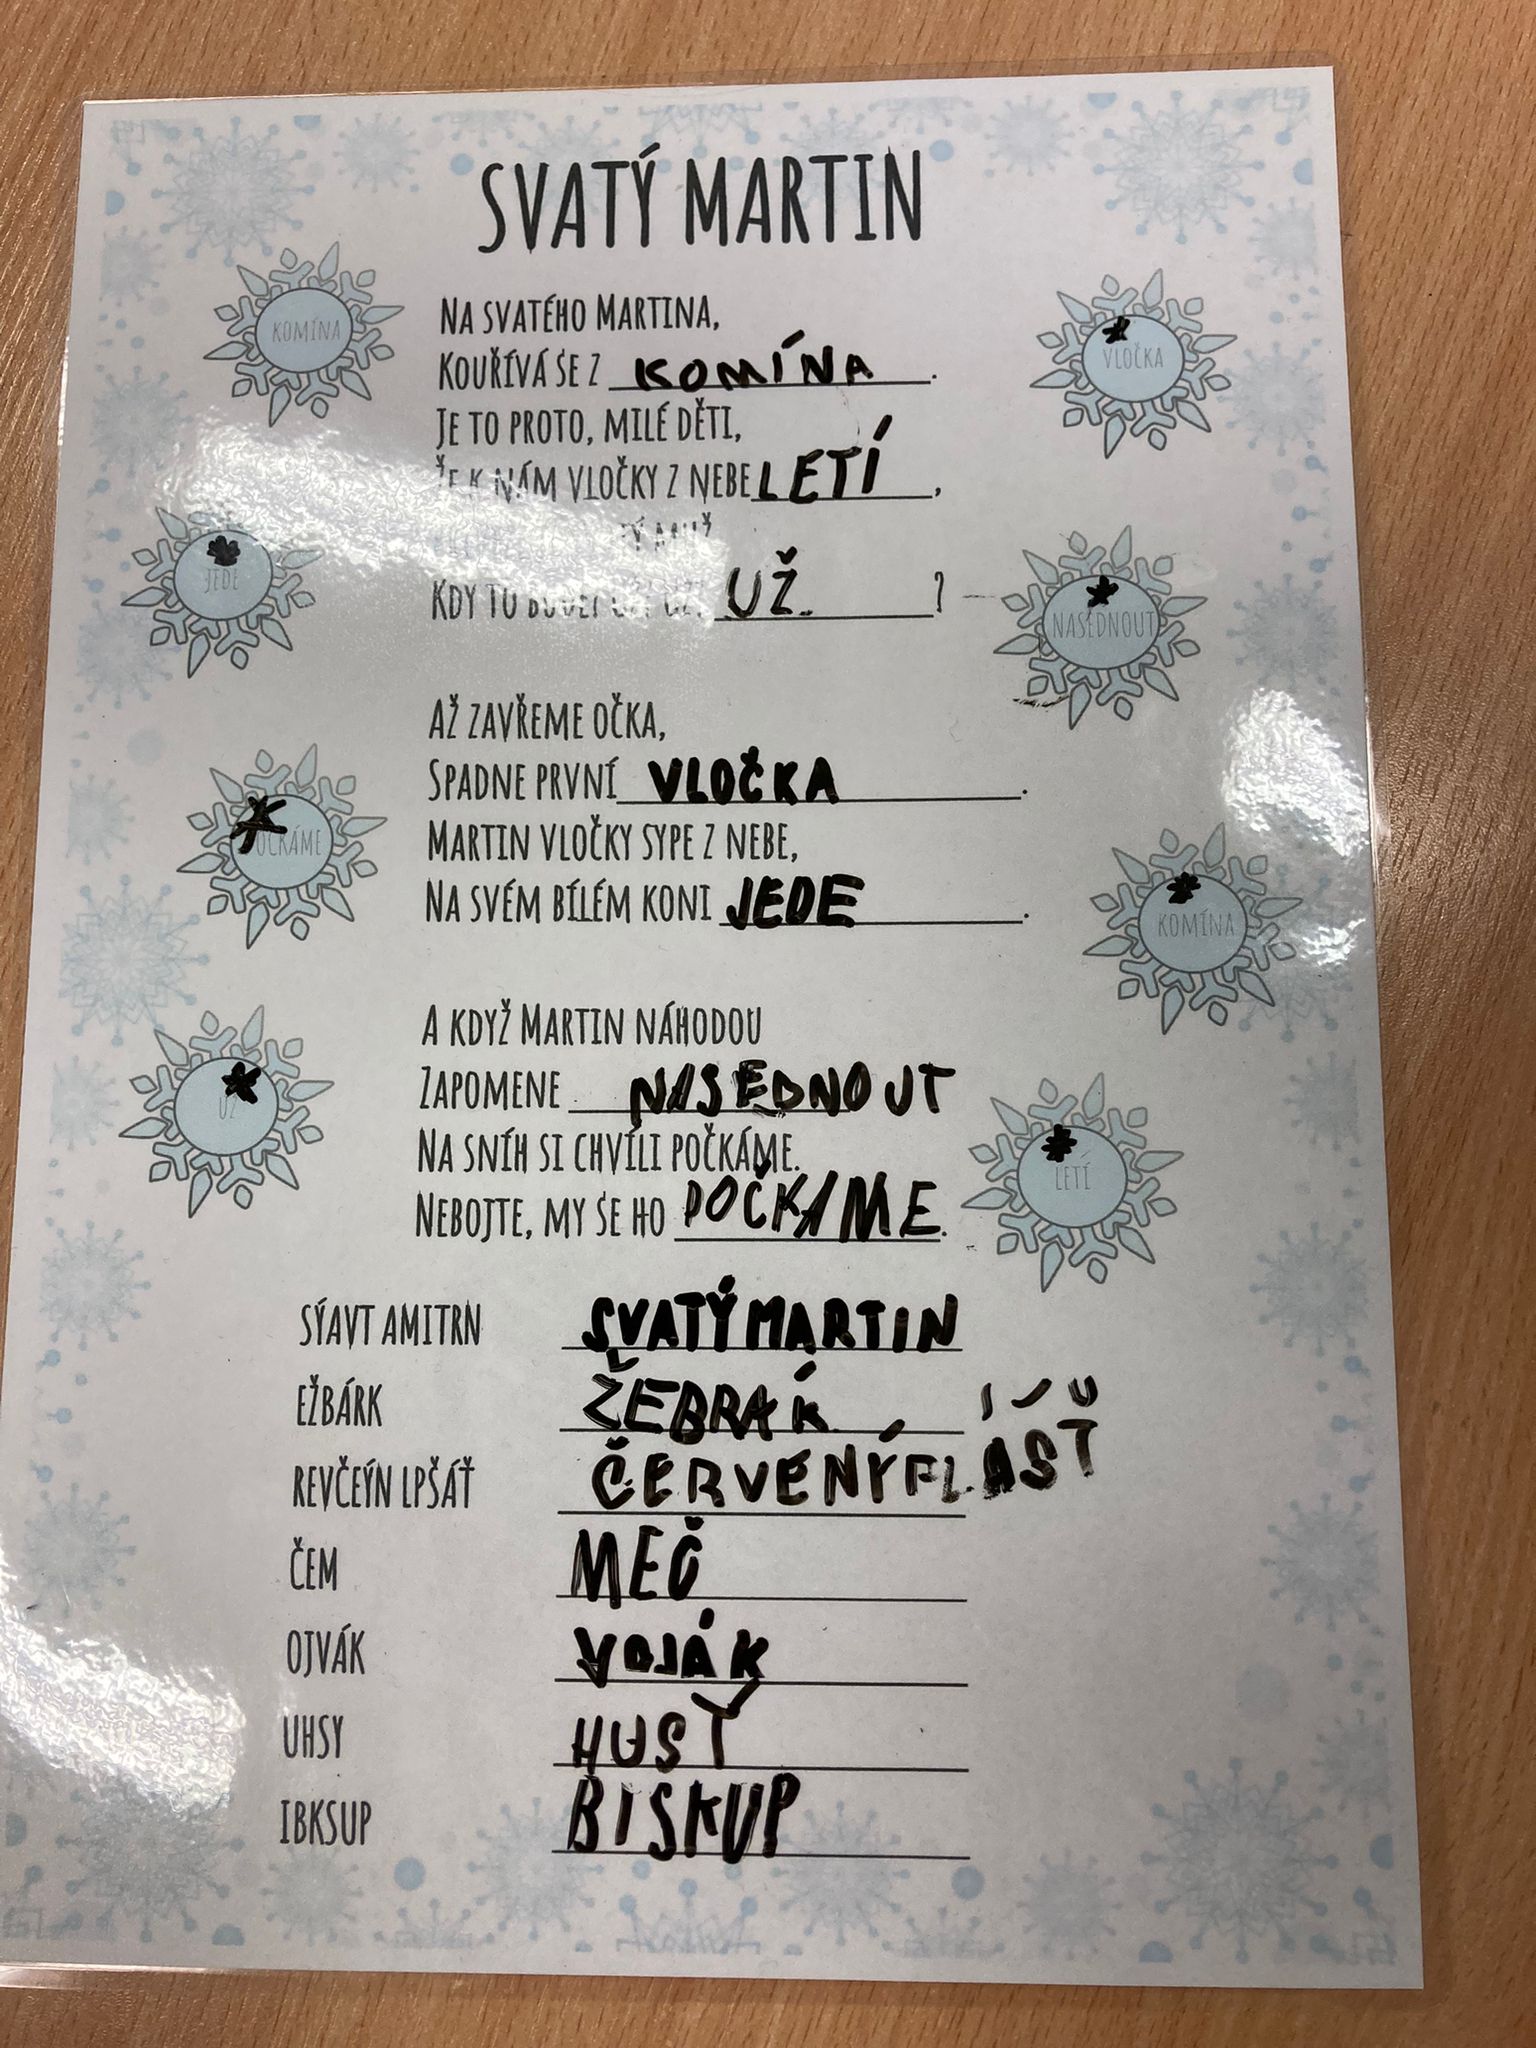 SVATÝ MARTIN
KOMÍNA
VLOČKA
NA SVATÉHO MARTINA,
KOUŘÍVÁ SE Z KOMÍNA.
JE TO PROTO, MILÉ DĚTI,
ŽE K NÁM VLOČKY Z NEBE LETÍ,
KDY TO UŽ ?
JEDE
NASEDNOUT
AŽ ZAVŘEME OČKA,
SPADNE PRVNÍ VLOČKA.
MARTIN VLOČKY SYPE Z NEBE,
NA SVÉM BÍLÉM KONI JEDE.
KOMÍNA
A KDYŽ MARTIN NÁHODOU
ZAPOMENE NASEDNOUT
NA SNÍH SI CHVÍLI POČKÁME.
NEBOJTE, MY SE HO POČKÁME.
UŽ
LETÍ
SÝAVT AMITRN SVATÝ MARTIN
EŽBÁRK ŽEBRÁK
REVČEÝN LPŠÁŤ ČERVENÝ
ČEM MEČ
OJVÁK VOJÁK
UHSY HUSY
IBKSUP BISKUP